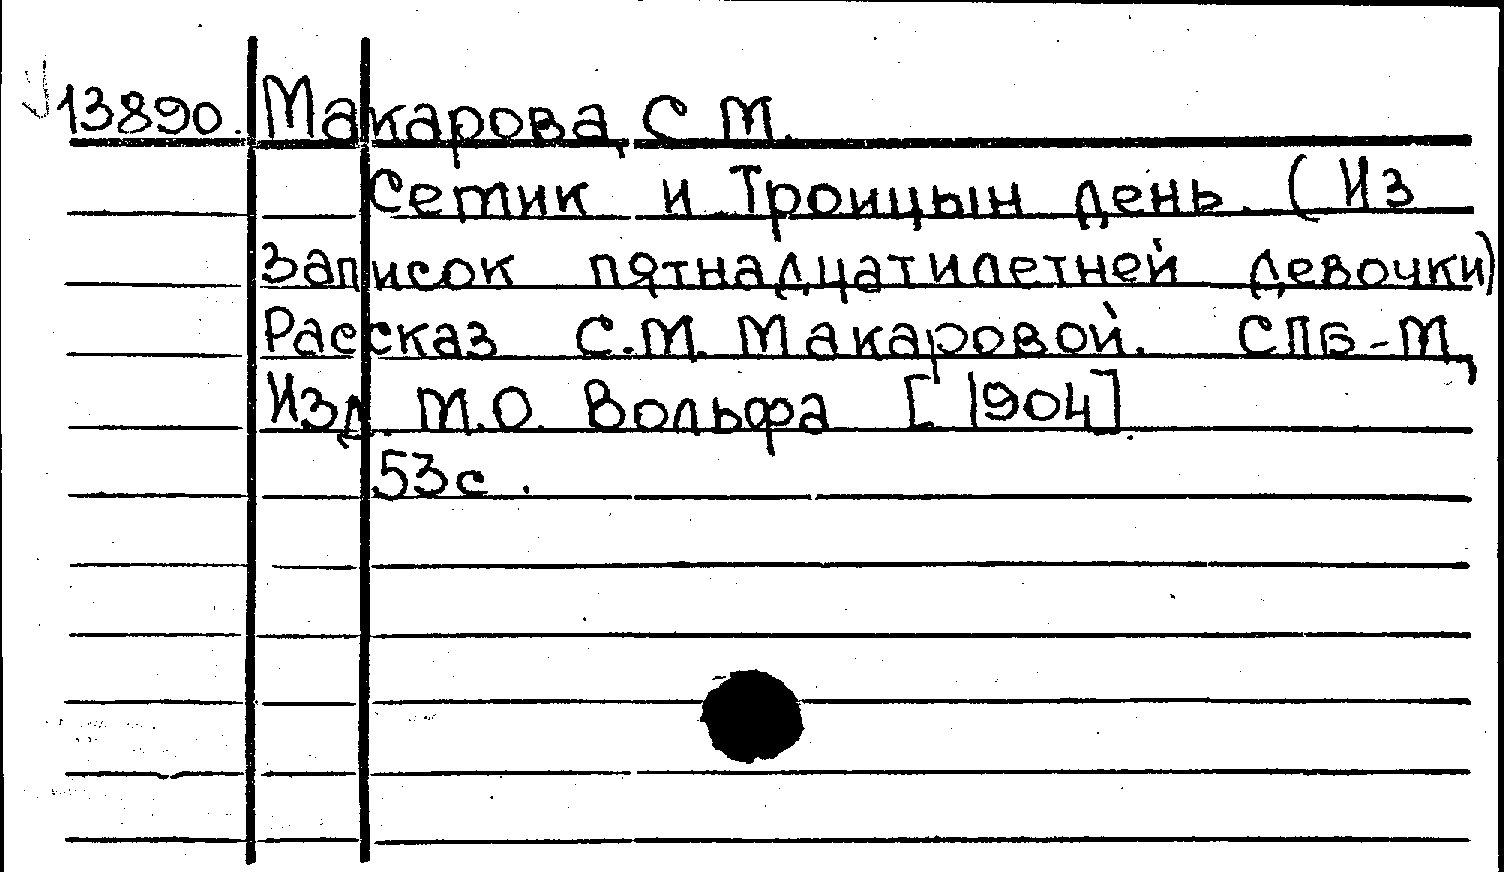 13890. Макарова, С М.
Сетик и Троицын день. (Из
записок пятнадцатилетней девочки)
Рассказ С.М. Макаровой. СПБ-М,
Изд. М.О. Вольфа [1904].
53с.